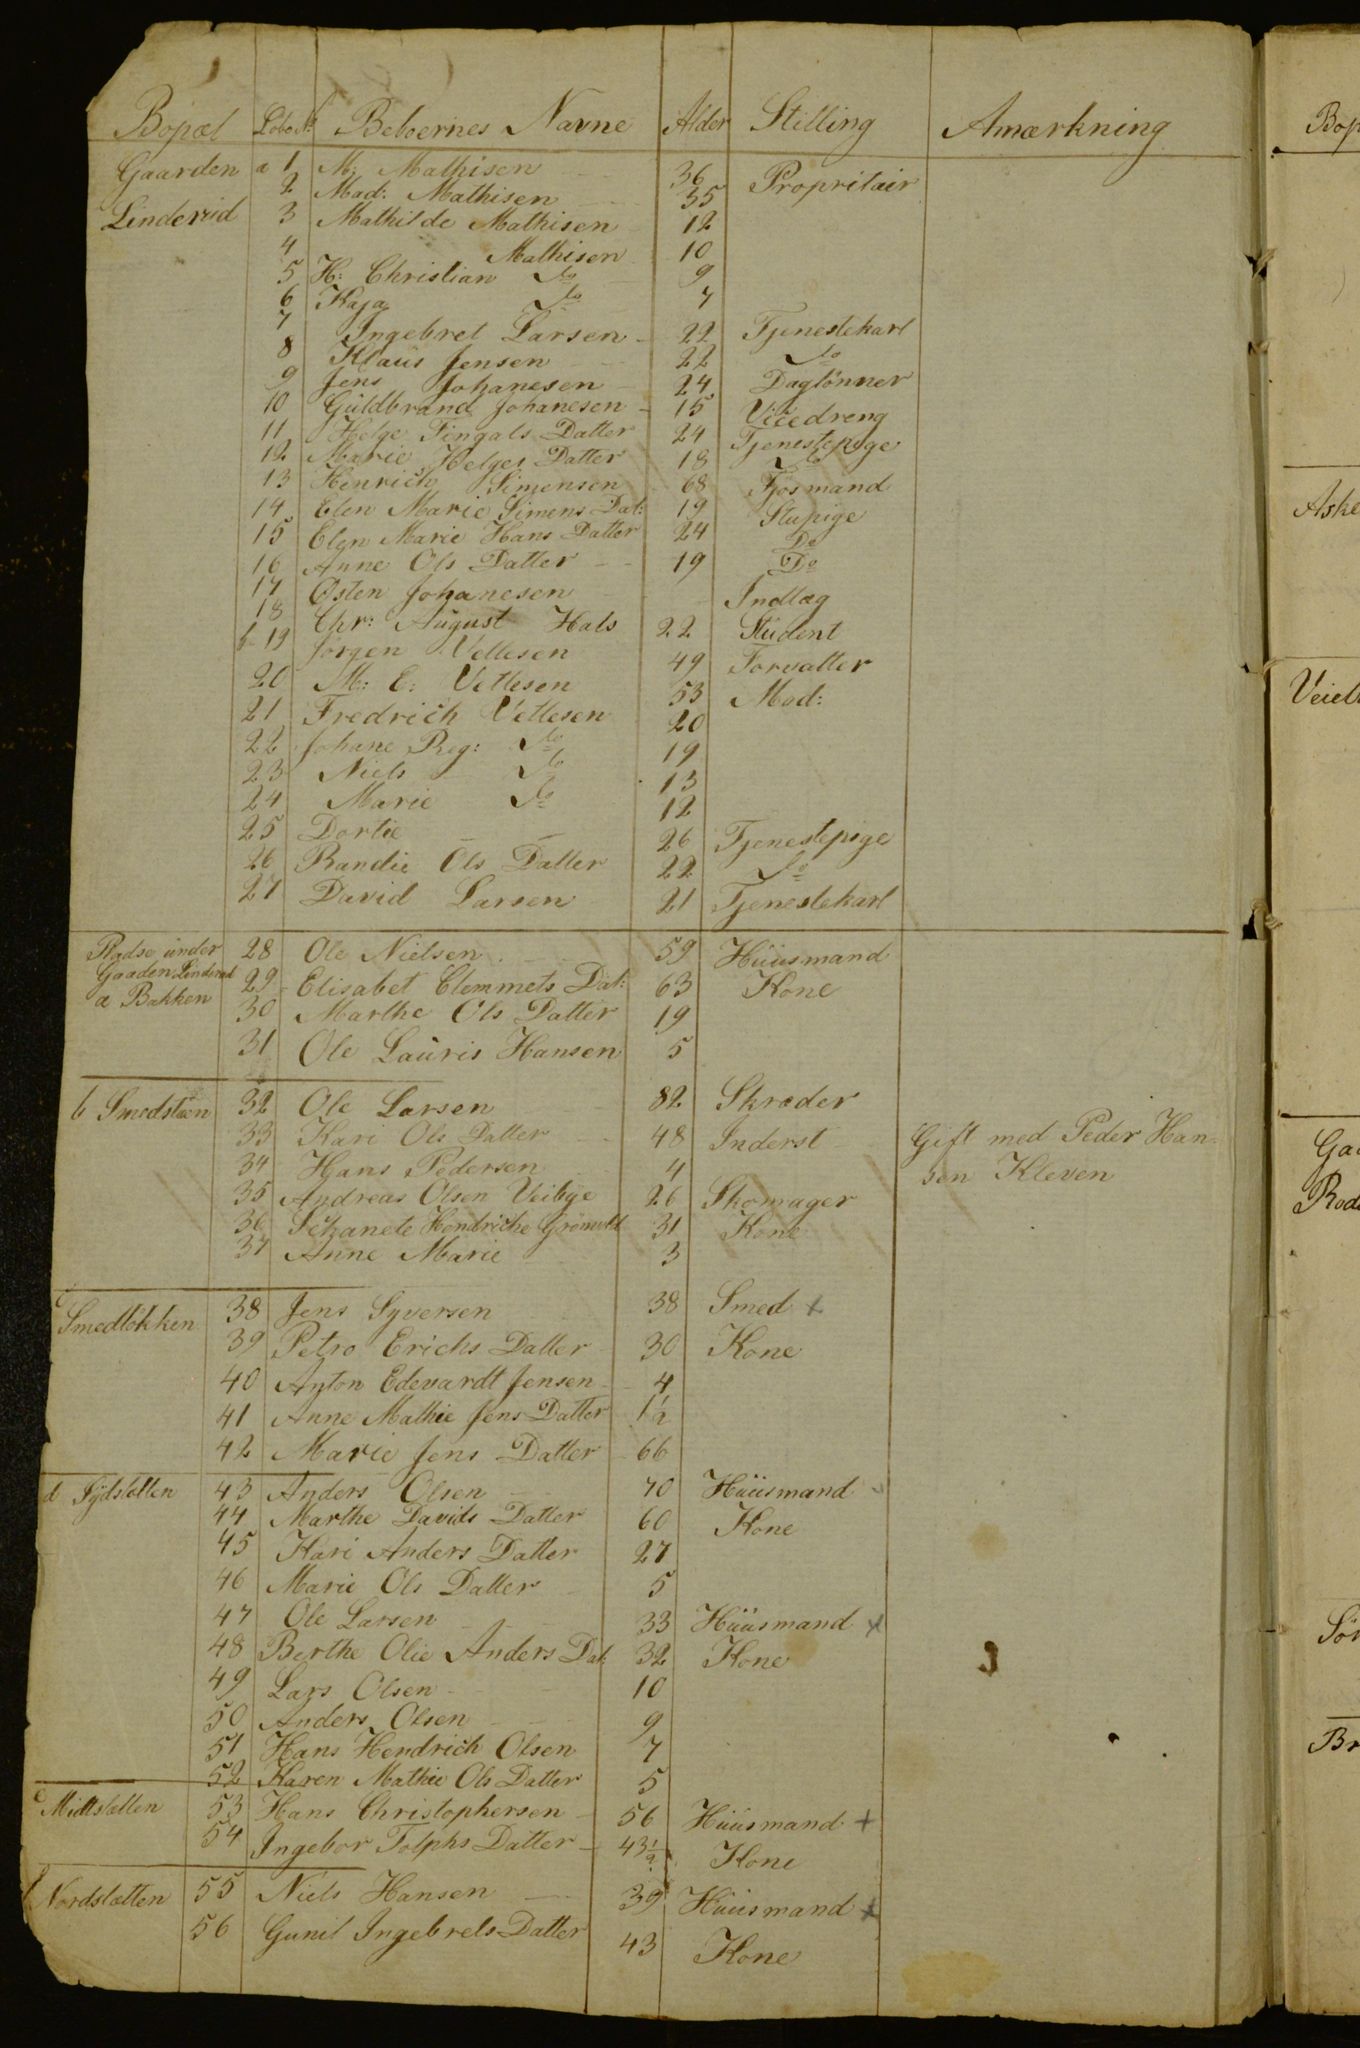 Bopæl Løbe№ Beboernes Navne Alder Stilling Anmærkning
Gaarden a 1 M. Mathisen 36 Propritair
2 Mad: Mathisen 35
Linderud 3 Mathilde Mathisen 12
4 Mathisen 10
5 H: Christian Do 9
6 Kaja Do 7
7 Ingebret Larsen 22 Tjenestekarl
8 Klaus Jensen 22 Do
9 Jens Johanesen 24 Daglönner
10 Guldbrand Johanesen 15 Vicedreng
11 Helge Fingals Datter 24 Tjenestepige
12 Marie Helges Datter 18 Do
13 Henrich Simensen 68 Fjösmand
14 Elen Marie Simens Dat: 19 Stupige
15 Elen Marie Hans Datter 24 Do
16 Anne Ols Datter 19 Do
17 Østen Johanesen Indlæg
18 Chr: August Hals 22 Student
b 19 Jörgen Vettesen 49 Forvalter
20 M: E: Vetlesen 53 Mad:
21 Fredrich Vetlesen 20
22 Johane Reg: Do 19
23 Niels Do 13
24 Marie Do 12
25 Dortie 26 Tjenestepige
26 Randie Ols Datter 22 Do
27 David Larsen 21 Tjenestekarl
Pladse under 28 Ole Nielsen 59 Huusmand
Gaaden Linderud 29 Elisabet Clemmets Dat: 63 Kone
a Bakken 30 Marthe Ols Datter 19
31 Ole Lauris Hansen 5
b Smedstuen 32 Ole Larsen 82 Skræder
33 Kari Ols Datter 48 Inderst Gift med Peder Han-
34 Hans Pedersen 4 sen Kleven
35 Andreas Olsen Veibye 26 Skomager
36 Hendriche Grönvold 31 Kone
37 Anne Marie 3
c
Smedlökken 38 Jens Syversen 38 Smed x
39 Petro Erichs Datter 30 Kone
40 Anton Edevardt Jensen 4
41 Anne Mathie Jens Datter 1½
42 Marie Jens Datter 66
d Sydsletten 43 Anders Olsen 70 Huusmand
44 Marthe Davids Datter 60 Kone
45 Kari Anders Datter 27
46 Marie Ols Datter 5
47 Ole Larsen 33 Huusmand x
48 Berthe Olie Anders Dat: 32 Kone
49 Lars Olsen 10
50 Anders Olsen 9
51 Hans Hendrich Olsen 7
52 Karen Mathie Ols Datter 5
e Midtsletten 53 Hans Christophersen 56 Huusmand +
54 Ingebor Tolphs Datter 43½ Kone
f Nordsletten 55 Niels Hansen 39 Huusmand x
56 Gunil Ingebrets Datter 43 Kone
Bop
Aske
Veiet
Ga
Rod
Sør
Br